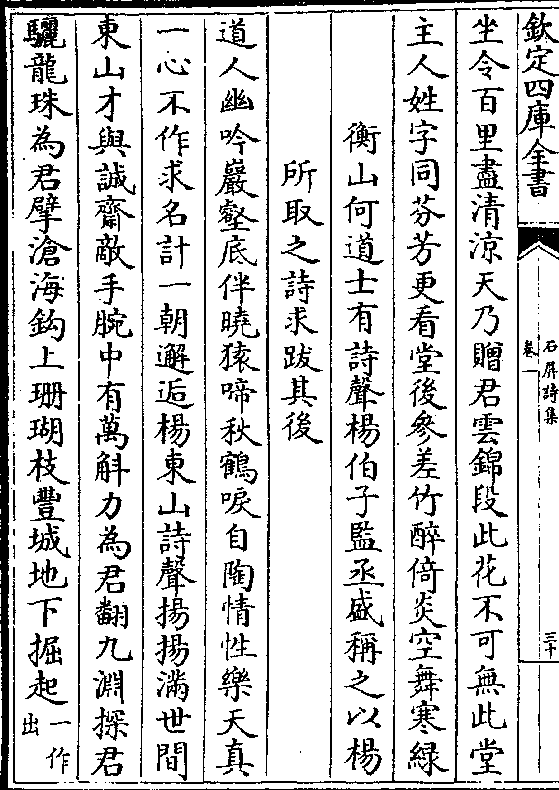 欽定四庫全書
石屏詩集
卷一
三十
坐令百里盡清涼天乃贈君雲錦段此花不可無此堂
主人姓字同芬芳更看堂後參差竹醉倚炎空舞寒緑
衡山何道士有詩聲楊伯子監丞盛稱之以楊
所取之詩求跋其後
道人幽吟巖壑底伴曉猿啼秋鶴唳自陶情性樂天真
一心不作求名計一朝邂逅楊東山詩聲揚揚滿世間
東山才與誠齋敵手腕中有萬斛力為君翻九淵探君
驪龍珠為君擘滄海鈎上珊瑚枝豐城地下掘起一作
出